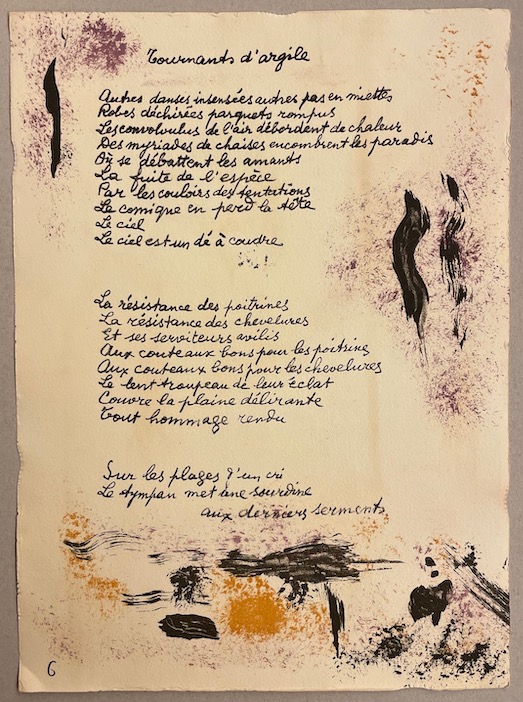 Tournants d'argile
Autres danses insensées autres pas en miettes
Robes déchirées parquets rompus
Les convolvulus de l'air débordent de chaleur
Des myriades de chaises encombrent les paradis
Où se débattent les amants
La fuite de l'espèce
Par les couloirs des tentations
Le comique en perd la tête
Le ciel
Le ciel est un dé à coudre
La résistance des poitrines
La résistance des chevelures
Et ses serviteurs avilis
Aux couteaux bons pour les poitrines
Aux couteaux bons pour les chevelures
Le lent troupeau de leur éclat
Couvre la plaine délirante
Tout hommage rendu
Sur les plages d'un cri
Le tympan met une sourdine
aux derniers serments
6